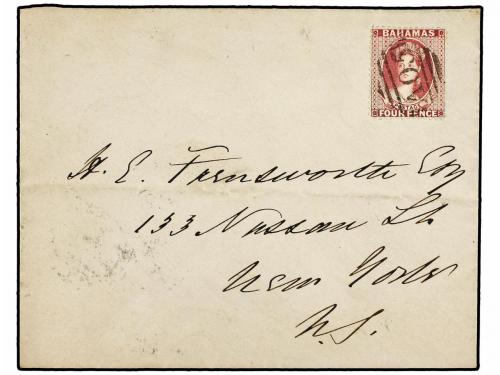 BAHAMAS
POSTAGE
FOUR PENCE
H. E. Farnsworth Esq
133 Nassau St.
New York
U.S.